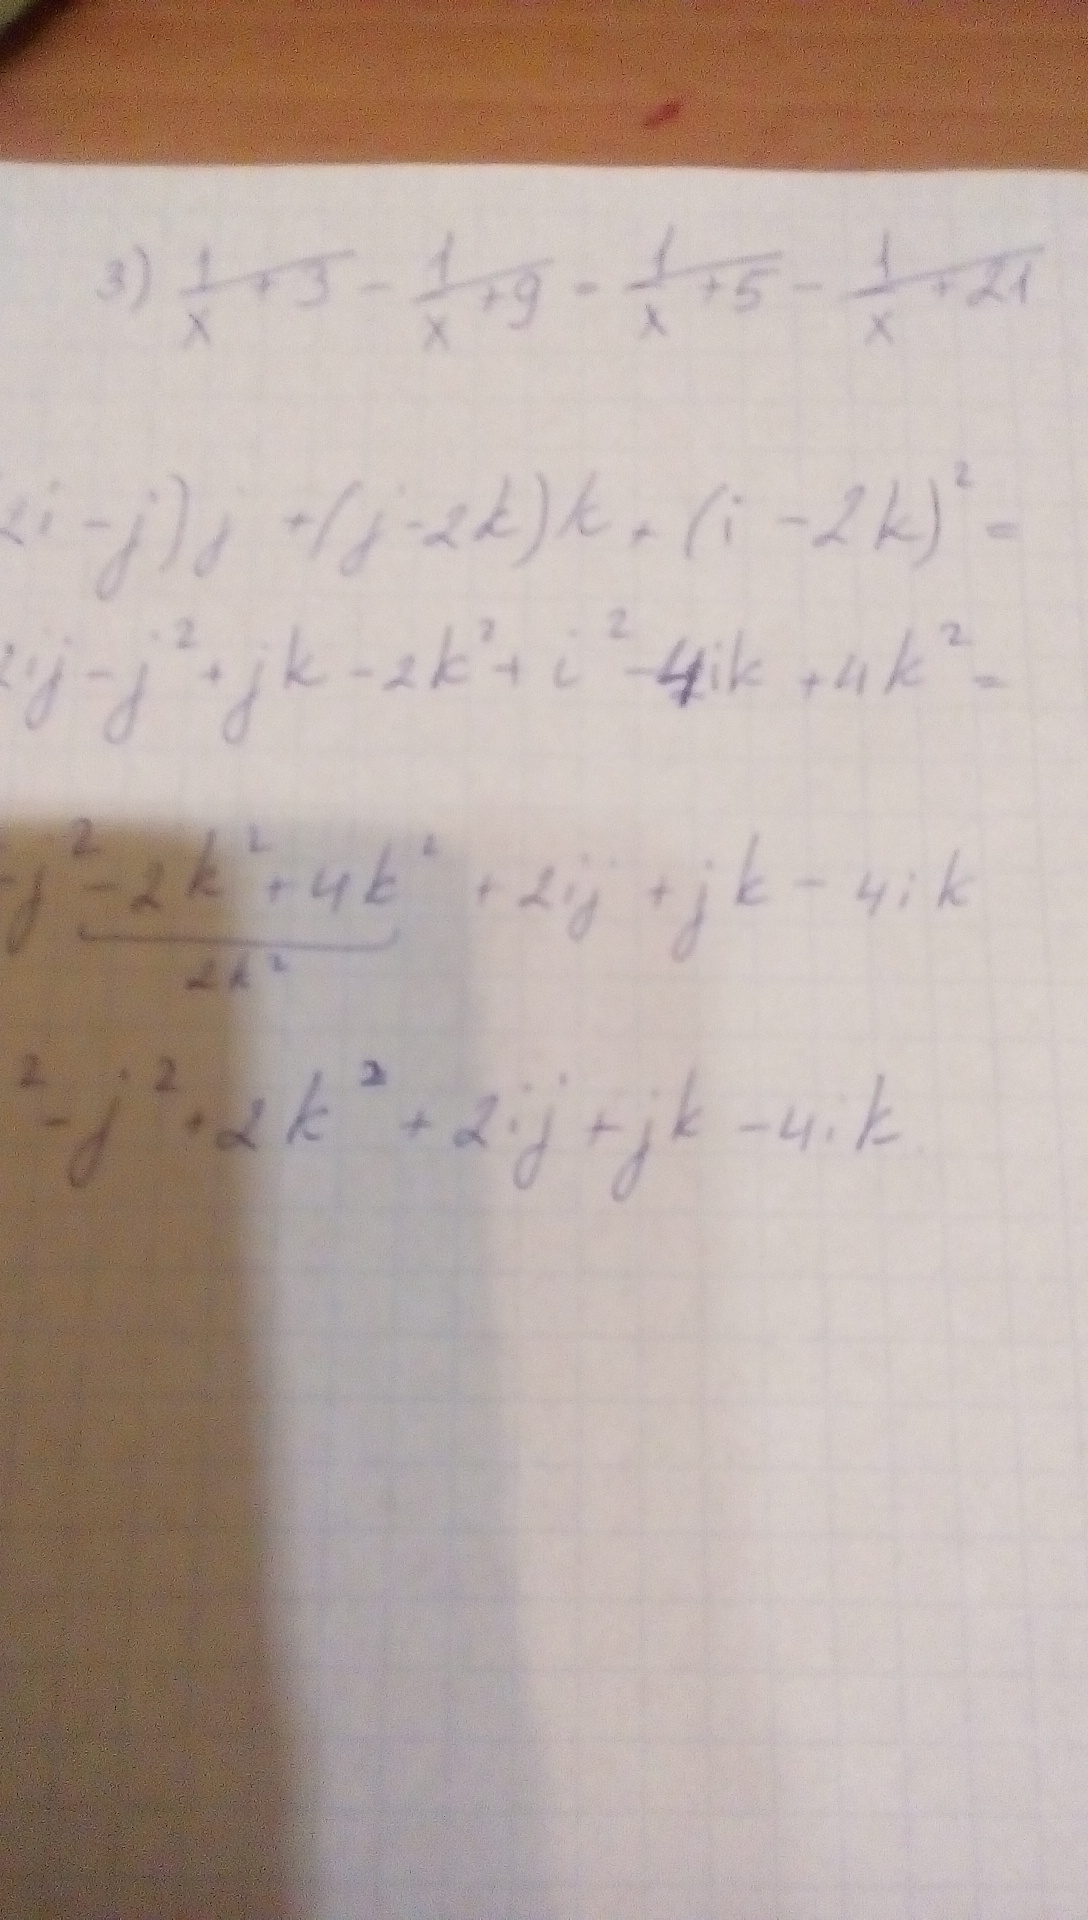 3) 1/x + 3 - 1/x + 9 - 1/x + 5 - 1/x + 21
2i - j) j + (j - 2k) k + (i - 2k)² =
2ij - j² + jk - 2k² + i² - 4ik + 4k² =
- j² - 2k² + 4k² + 2ij + jk - 4ik
2k²
² - j² + 2k² + 2ij + jk - 4ik